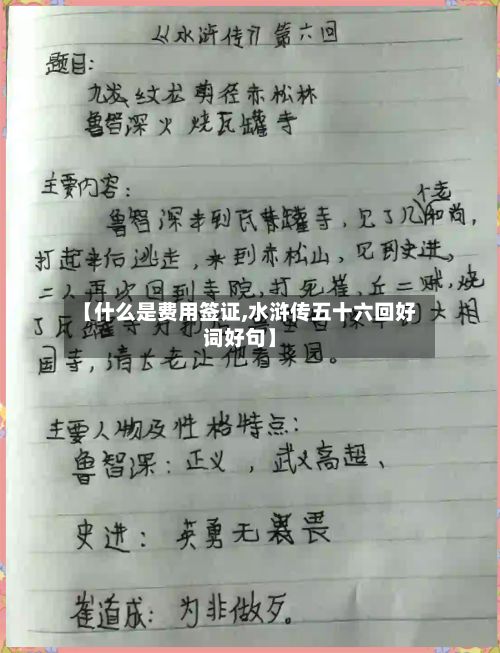 《水浒传》第六回
题目:
九纹龙剪径赤松林
鲁智深火烧瓦罐寺
主要内容:
鲁智深来到瓦罐寺,见了几个老和尚,
打起来后逃走,来到赤松山,见到史进。
二人再次回到寺院,打死崔、丘二贼,烧
了瓦罐寺
【什么是费用签证,水浒传五十六回好
词好句】
大相
国寺,清长老让他看菜园。
主要人物及性格特点:
鲁智深:正义,武义高超、
史进:英勇无畏
崔道成:为非做歹。